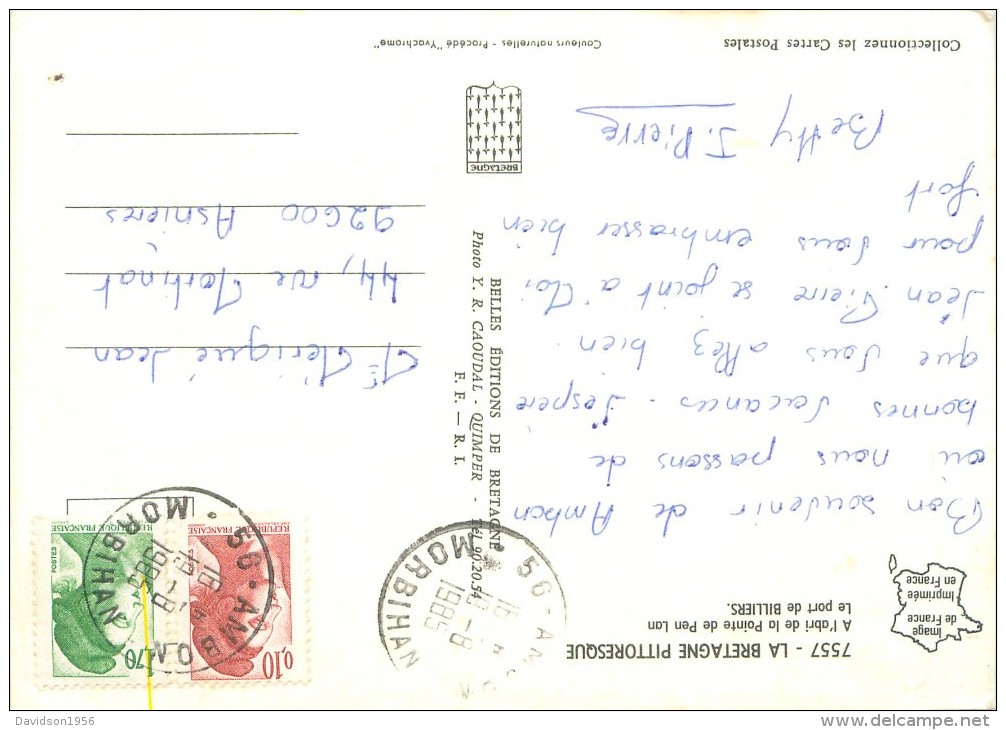 7557 - LA BRETAGNE PITTORESQUE
A l'abri de la Pointe de Pen Lan
Le port de BILLIERS.
Image
de France
Imprimée
en France
Bon souvenir de Ambon
ou nous passons de
bonnes vacances. J'espère
que vous allez bien.
Jean Pierre se joint a
pour vous embrasser bien
fort
Betty J. Pierre
Collectionnez les Cartes Postales
Couleurs naturelles - Procédé "Yvachrome"
BELLES ÉDITIONS DE BRETAGNE
Photo Y. R. CAOUDAL - QUIMPER - Tél. 90.20.54
F. F. — R. I.
BRETAGNE
56 - AMBON
MORBIHAN
1985
0,10
RÉPUBLIQUE FRANÇAISE
1,70
POSTES
RÉPUBLIQUE FRANÇAISE
56 - AMBON
MORBIHAN
1985
Jean
44, rue
92600 Asnières
Davidson1956
www.delcampe.net